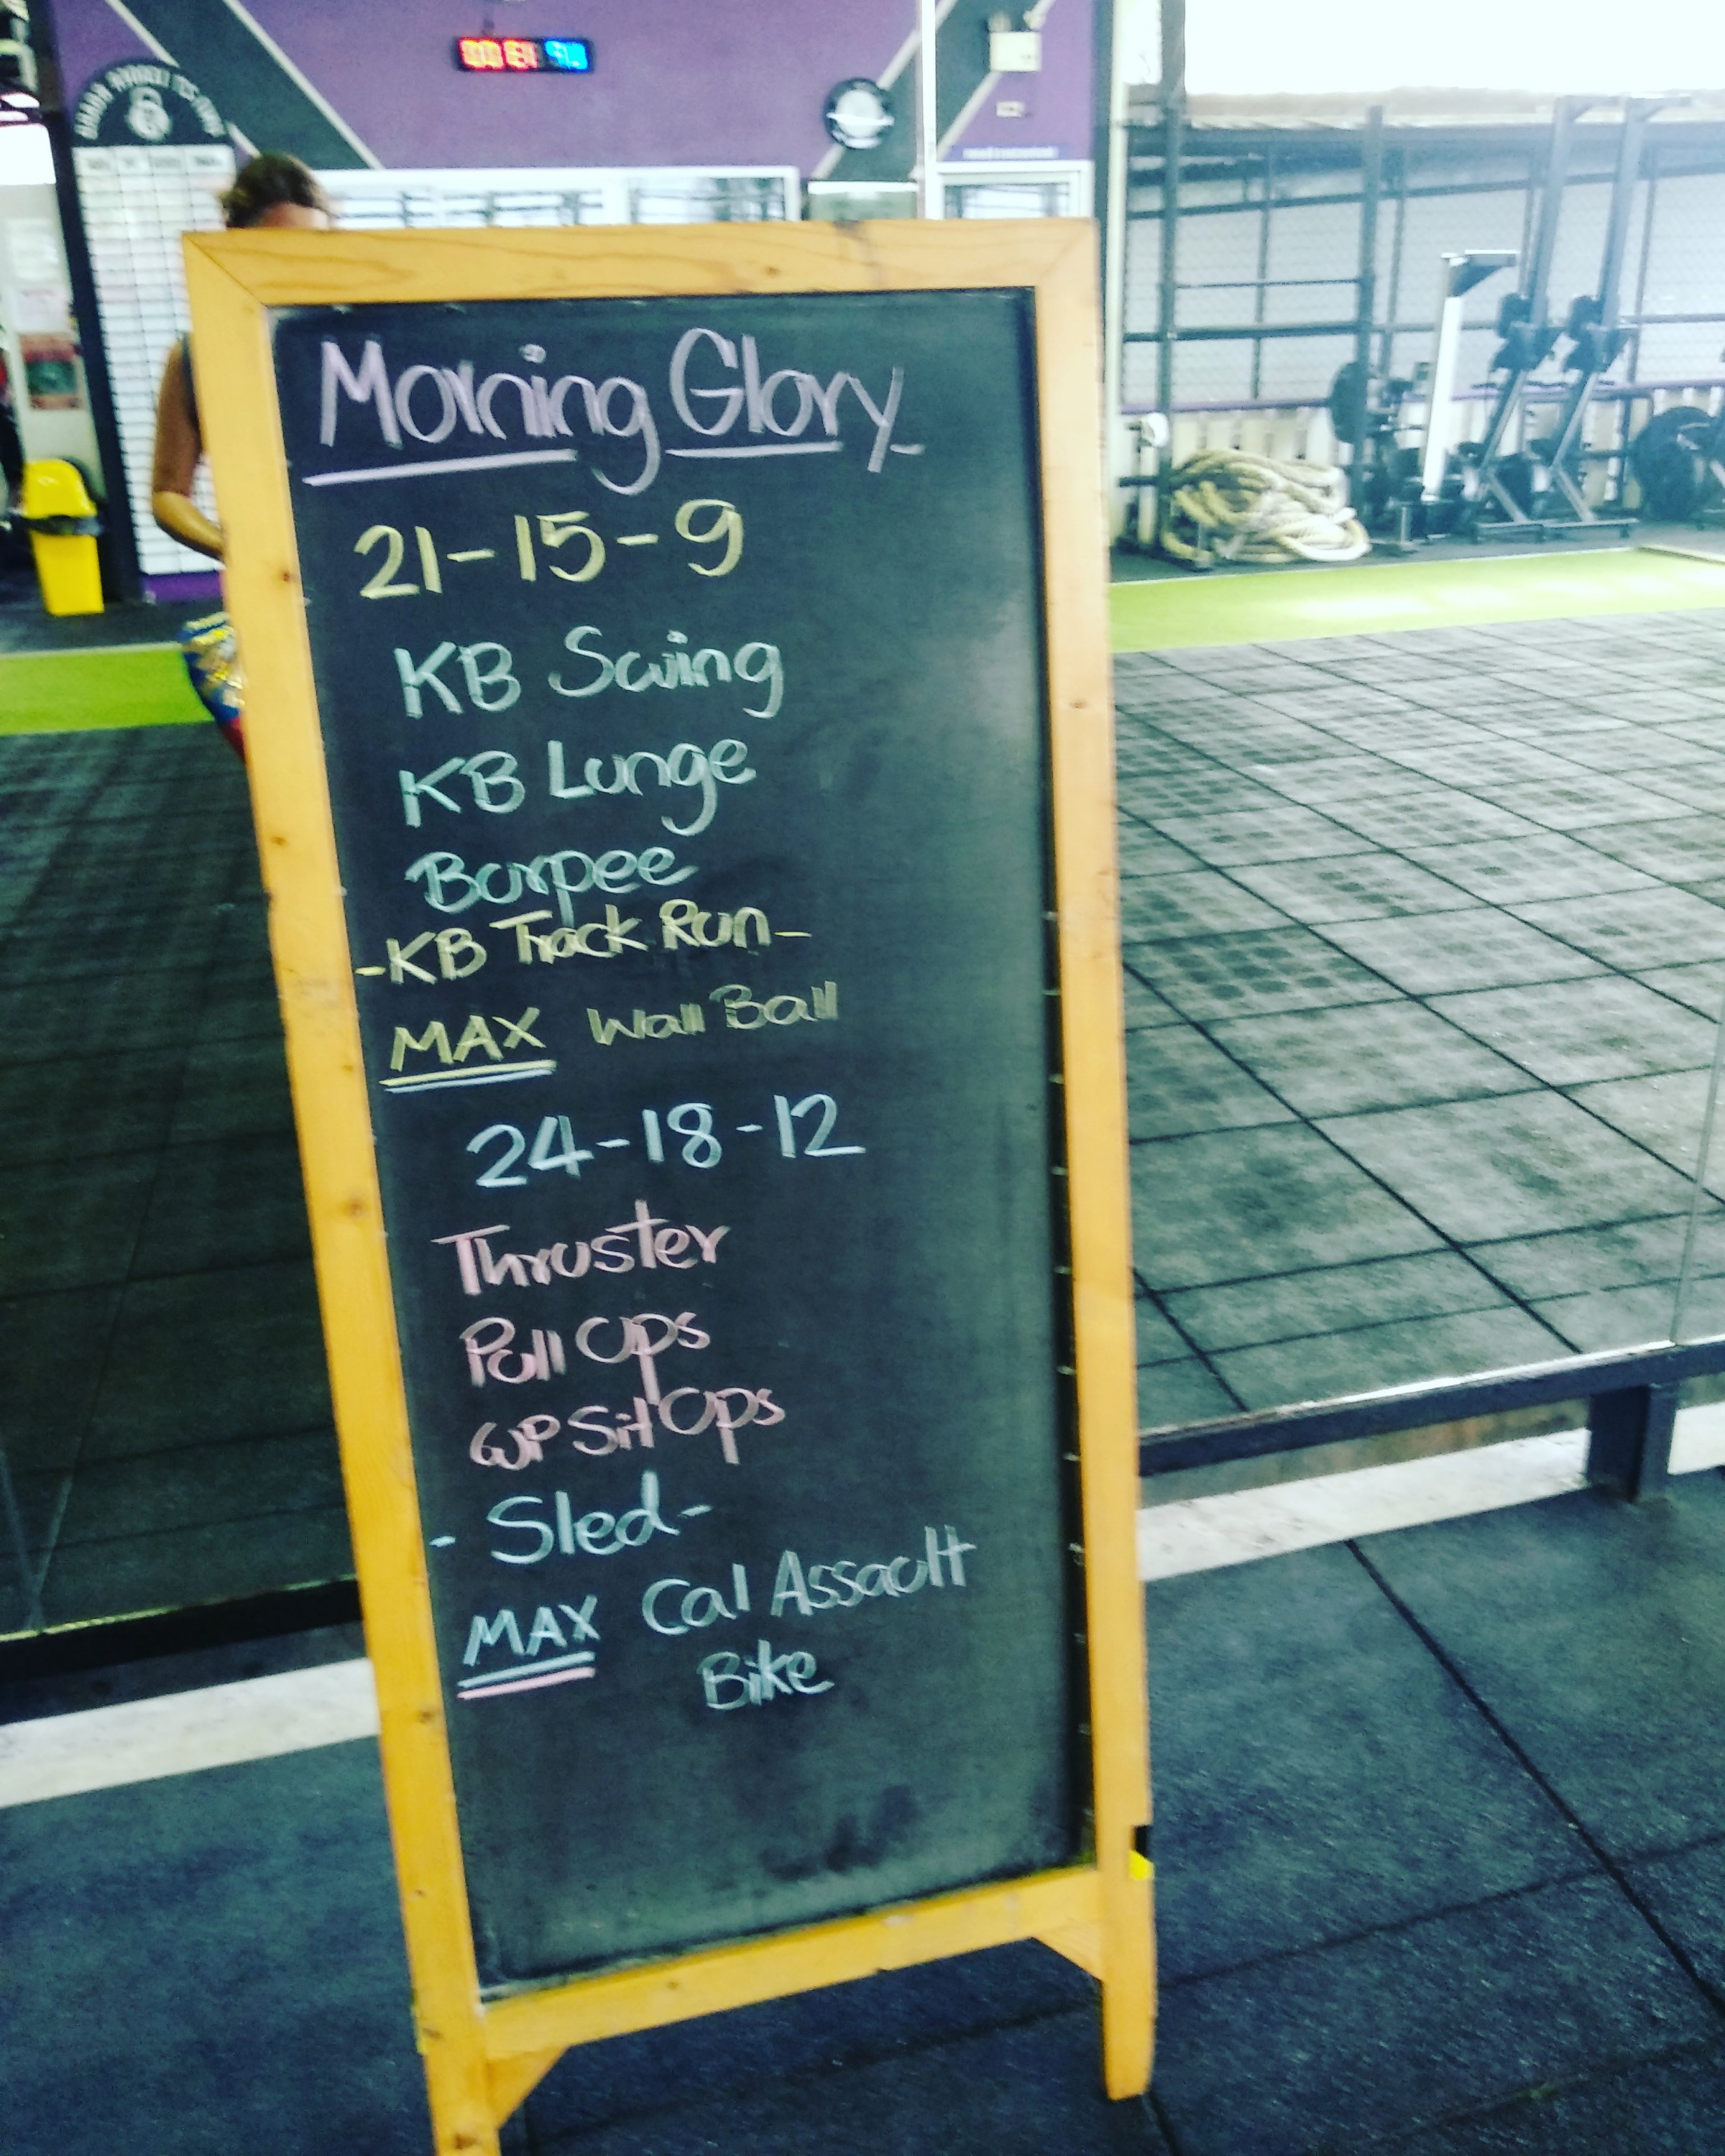 Morning Glory
21-15-9
KB Swing
KB Lunge
Burpee
-KB Track Run-
MAX Wall Ball
24-18-12
Thruster
Pull Ups
WP Sit Ups
- Sled -
MAX Cal Assault
Bike